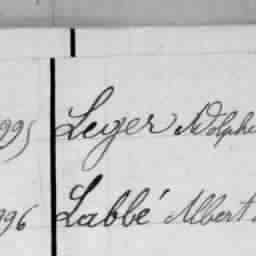 995 Leger Adolphe
996 Labbé Albert